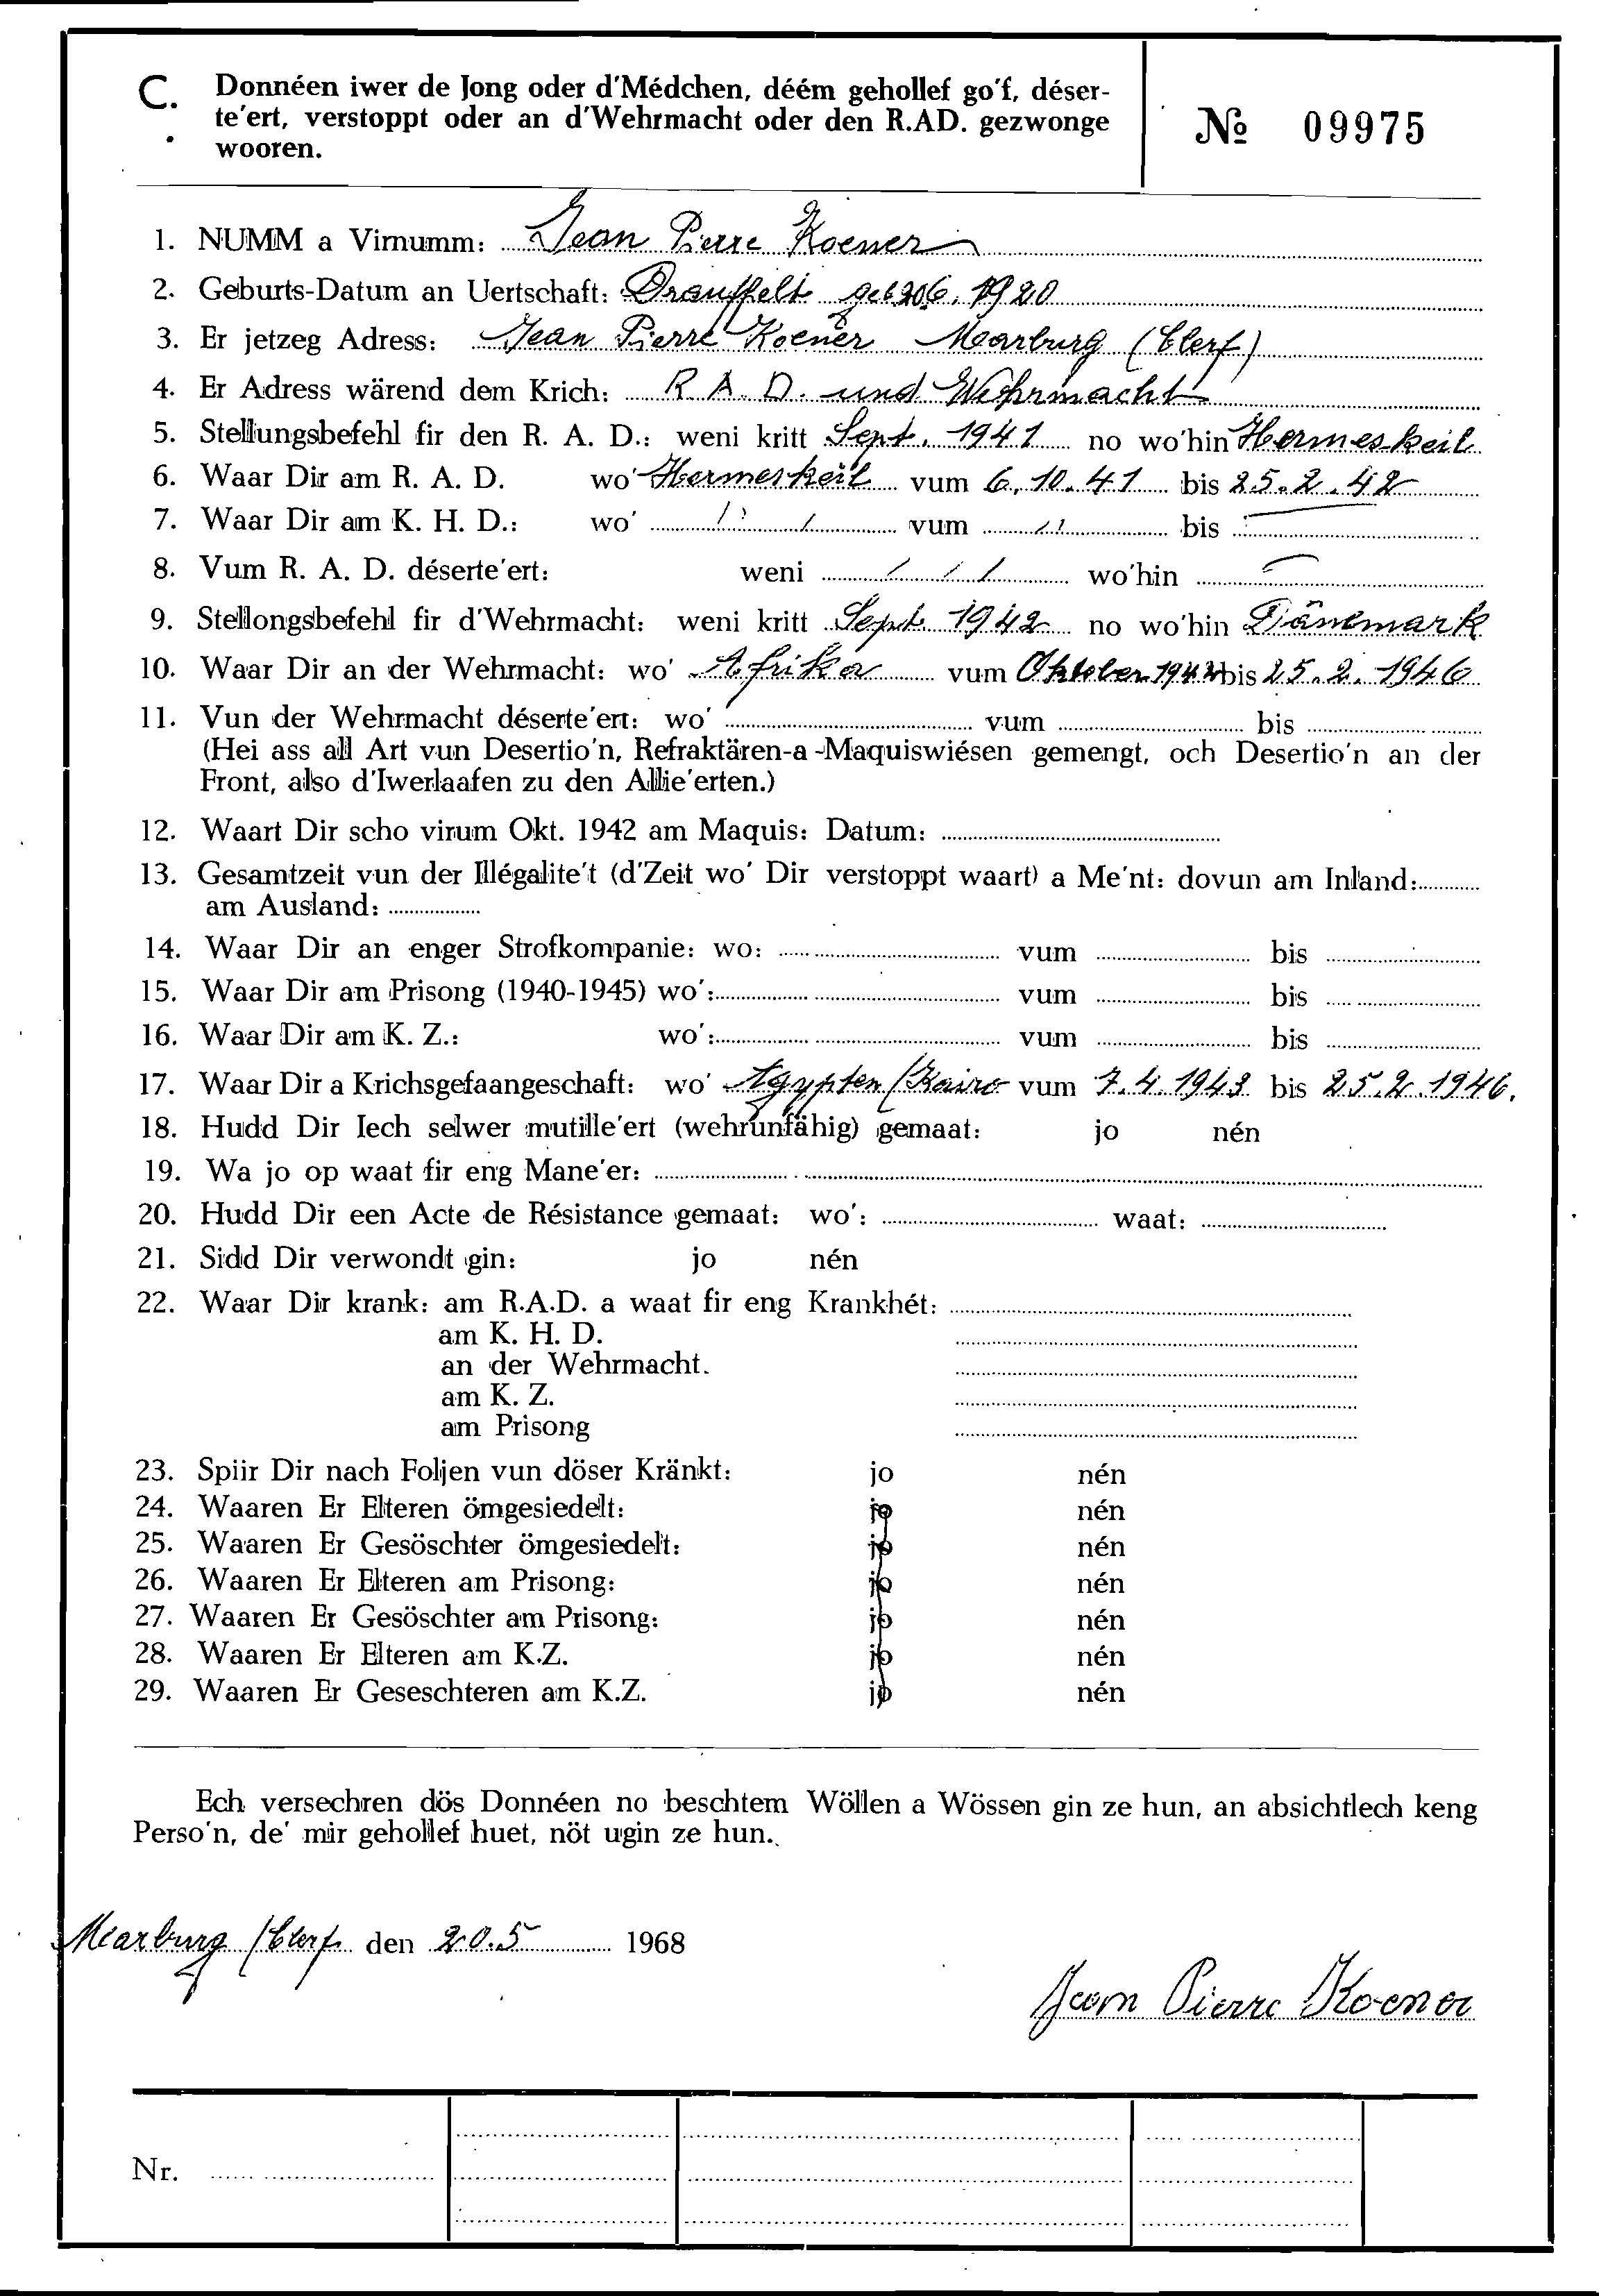 C. Donnéen iwer de Jong oder d'Médchen, déém gehollef go'f, déser-
te'ert, verstoppt oder an d'Wehrmacht oder den R.AD. gezwonge
wooren.
№ 09975
1. NUMM a Virnumm: Jean Pierre Koener
2. Geburts-Datum an Uertschaft: Drauffelt geb 20.6.1920
3. Er jetzeg Adress: Jean Pierre Koener Marburg (Clerf)
4. Er Adress wärend dem Krich: R.A.D. und Wehrmacht
5. Stellungsbefehl fir den R. A. D.: weni kritt Sept. 1941 no wo'hin Hermeskeil
6. Waar Dir am R. A. D. wo' Hermeskeil vum 6.10.41 bis 25.2.42
7. Waar Dir am K. H. D.: wo' vum bis
8. Vum R. A. D. déserte'ert: weni wo'hin
9. Stellongsbefehl fir d'Wehrmacht: weni kritt Sept. 1942 no wo'hin Dänemark
10. Waar Dir an der Wehrmacht: wo' Afrika vum Oktober 1942 bis 25.2.1946
11. Vun der Wehrmacht déserte'ert: wo' vum bis
(Hei ass all Art vun Desertio'n, Refraktären-a-Maquiswiésen gemengt, och Desertio'n an der
Front, also d'Iwerlaafen zu den Allie'erten.)
12. Waart Dir scho virum Okt. 1942 am Maquis: Datum:
13. Gesamtzeit vun der Illégalite't (d'Zeit wo' Dir verstoppt waart) a Me'nt: dovun am Inland:
am Ausland:
14. Waar Dir an enger Strofkompanie: wo: vum bis
15. Waar Dir am Prisong (1940-1945) wo': vum bis
16. Waar Dir am K. Z.: wo': vum bis
17. Waar Dir a Krichsgefaangeschaft: wo' Ägypten/Kairo vum 7.4.1943 bis 25.2.1946.
18. Hudd Dir Iech selwer mutille'ert (wehrunfähig) gemaat: jo nén
19. Wa jo op waat fir eng Mane'er:
20. Hudd Dir een Acte de Résistance gemaat: wo': waat:
21. Sidd Dir verwondt gin: jo nén
22. Waar Dir krank: am R.A.D. a waat fir eng Krankhét:
am K. H. D.
an der Wehrmacht.
am K. Z.
am Prisong
23. Spiir Dir nach Foljen vun döser Kränkt: jo nén
24. Waaren Er Elteren ömgesiedelt: jo nén
25. Waaren Er Gesöschter ömgesiedelt: jo nén
26. Waaren Er Elteren am Prisong: jo nén
27. Waaren Er Gesöschter am Prisong: jo nén
28. Waaren Er Elteren am K.Z. jo nén
29. Waaren Er Geseschteren am K.Z. jo nén
Ech versechren dös Donnéen no beschtem Wöllen a Wössen gin ze hun, an absichtlech keng
Perso'n, de' mir gehollef huet, nöt ugin ze hun.
Marburg /Clerf den 20.5 1968
Jean Pierre Koener
Nr.